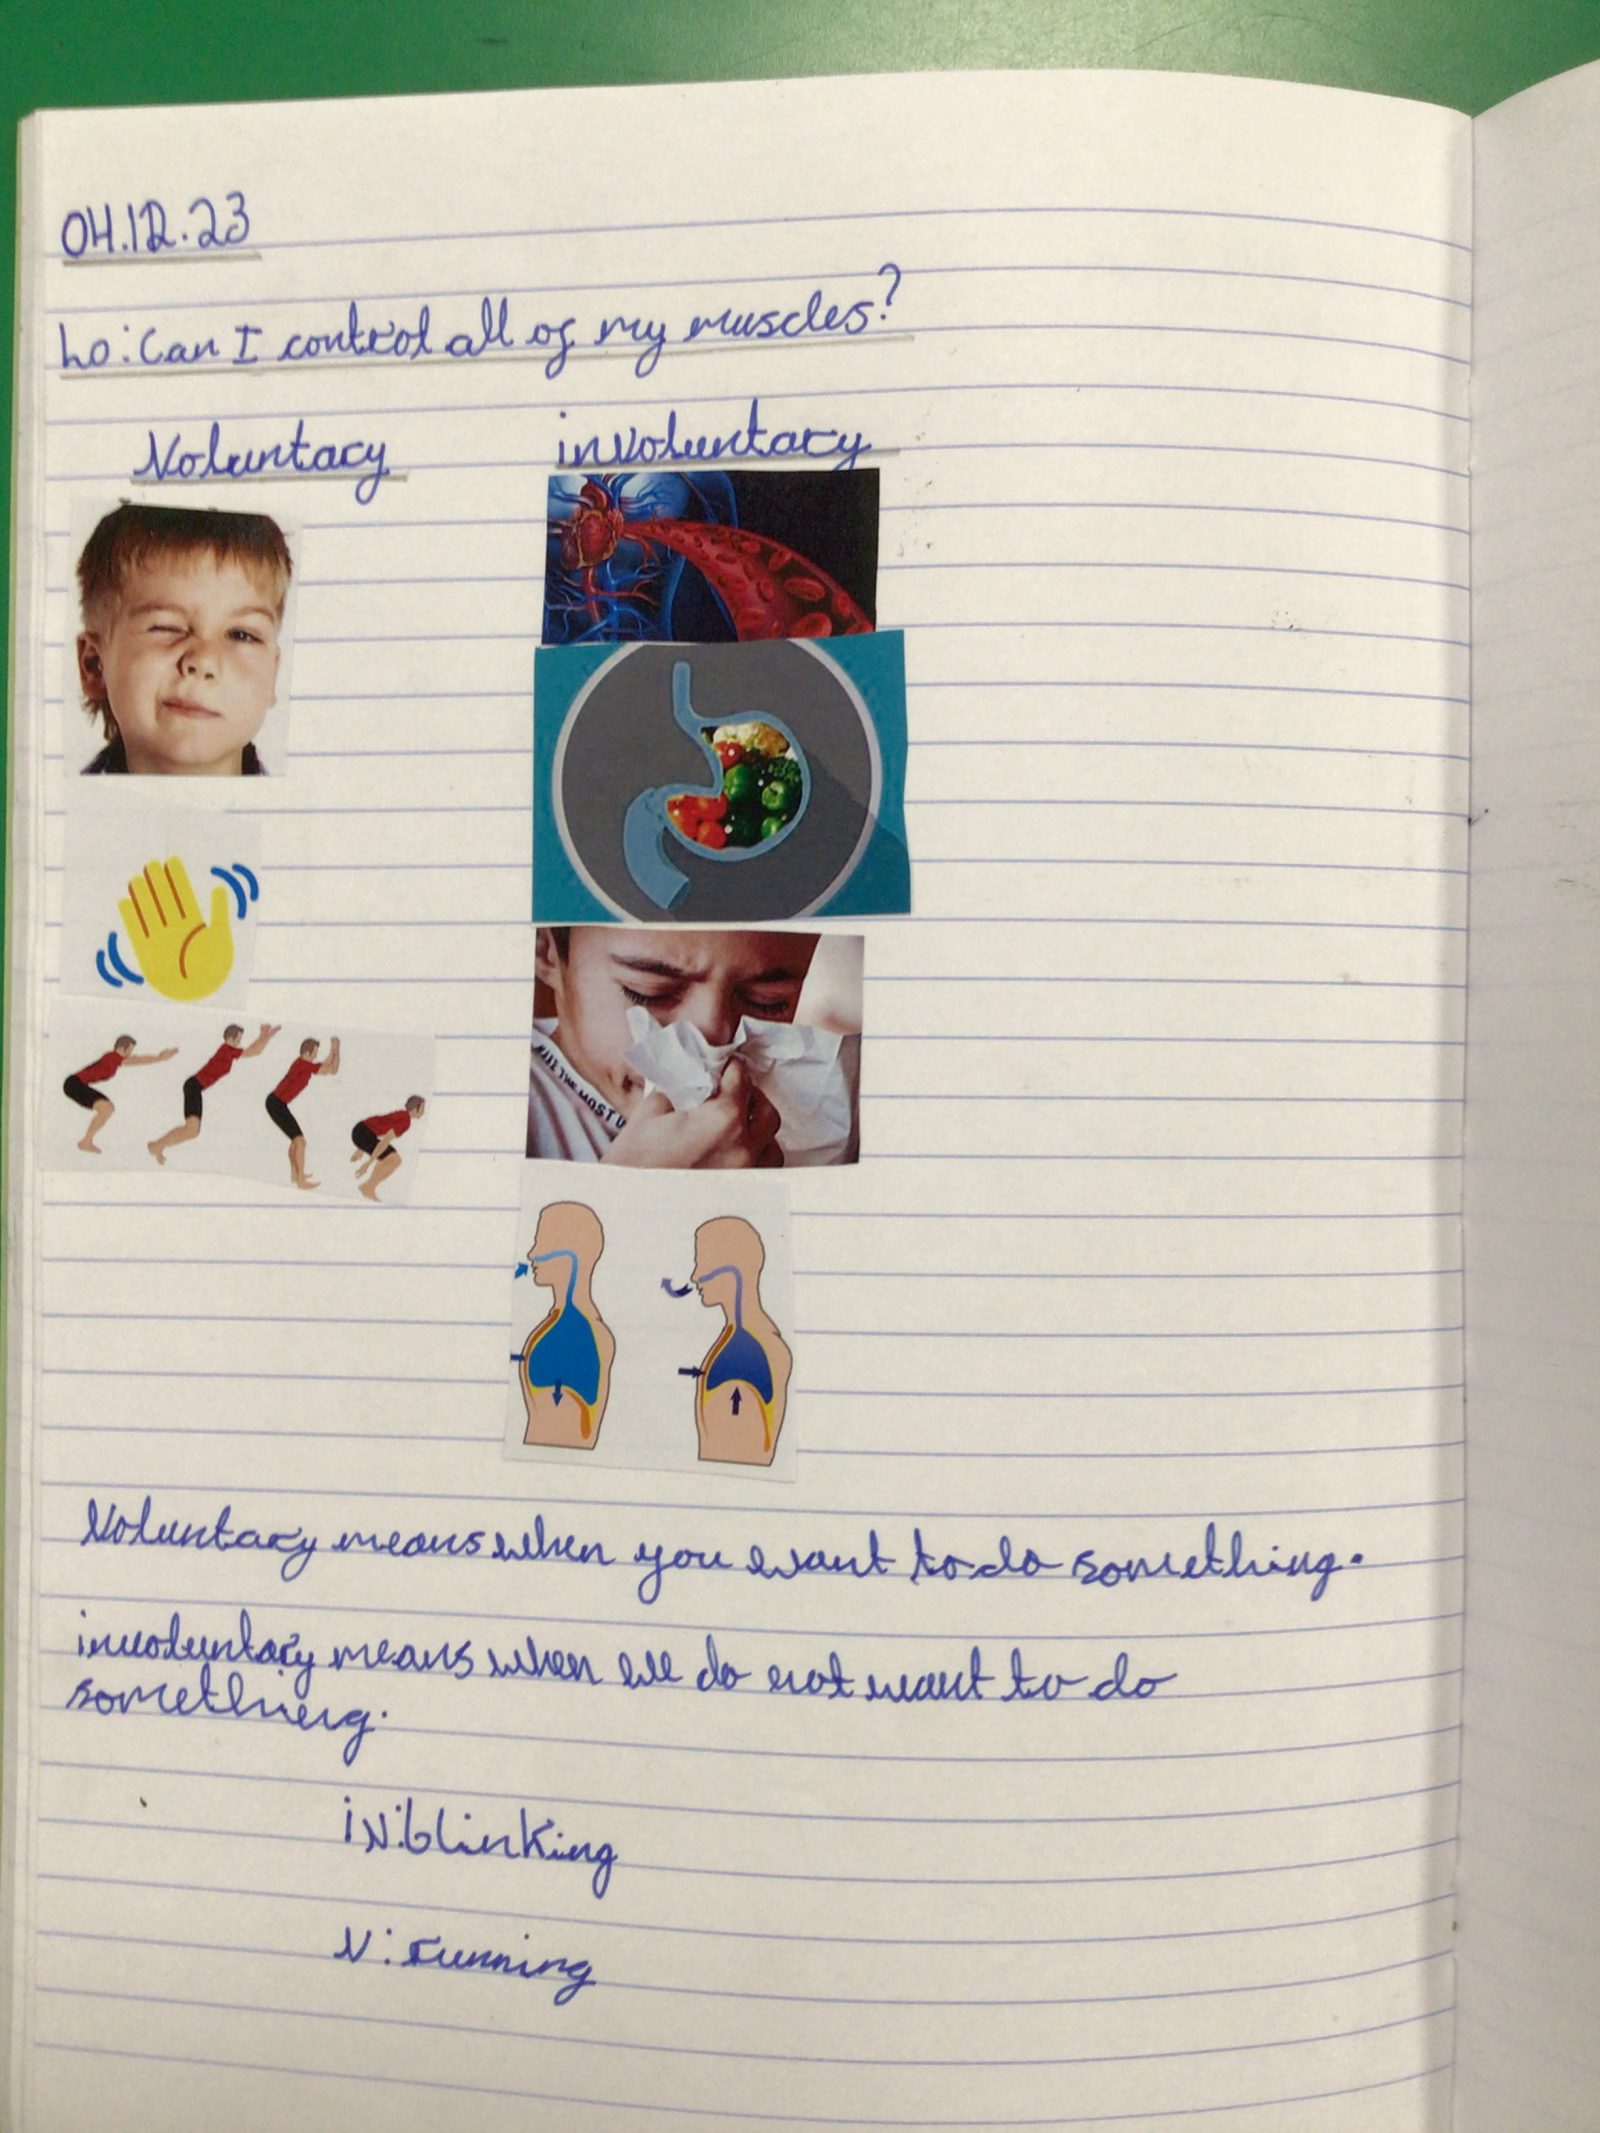 04.12.23
Lo: Can I control all of my muscles?
Voluntary
involuntary
KILL THE MOST U
Voluntary means when you want to do something.
involuntary means when we do not want to do
something.
iV: blinking
V: running